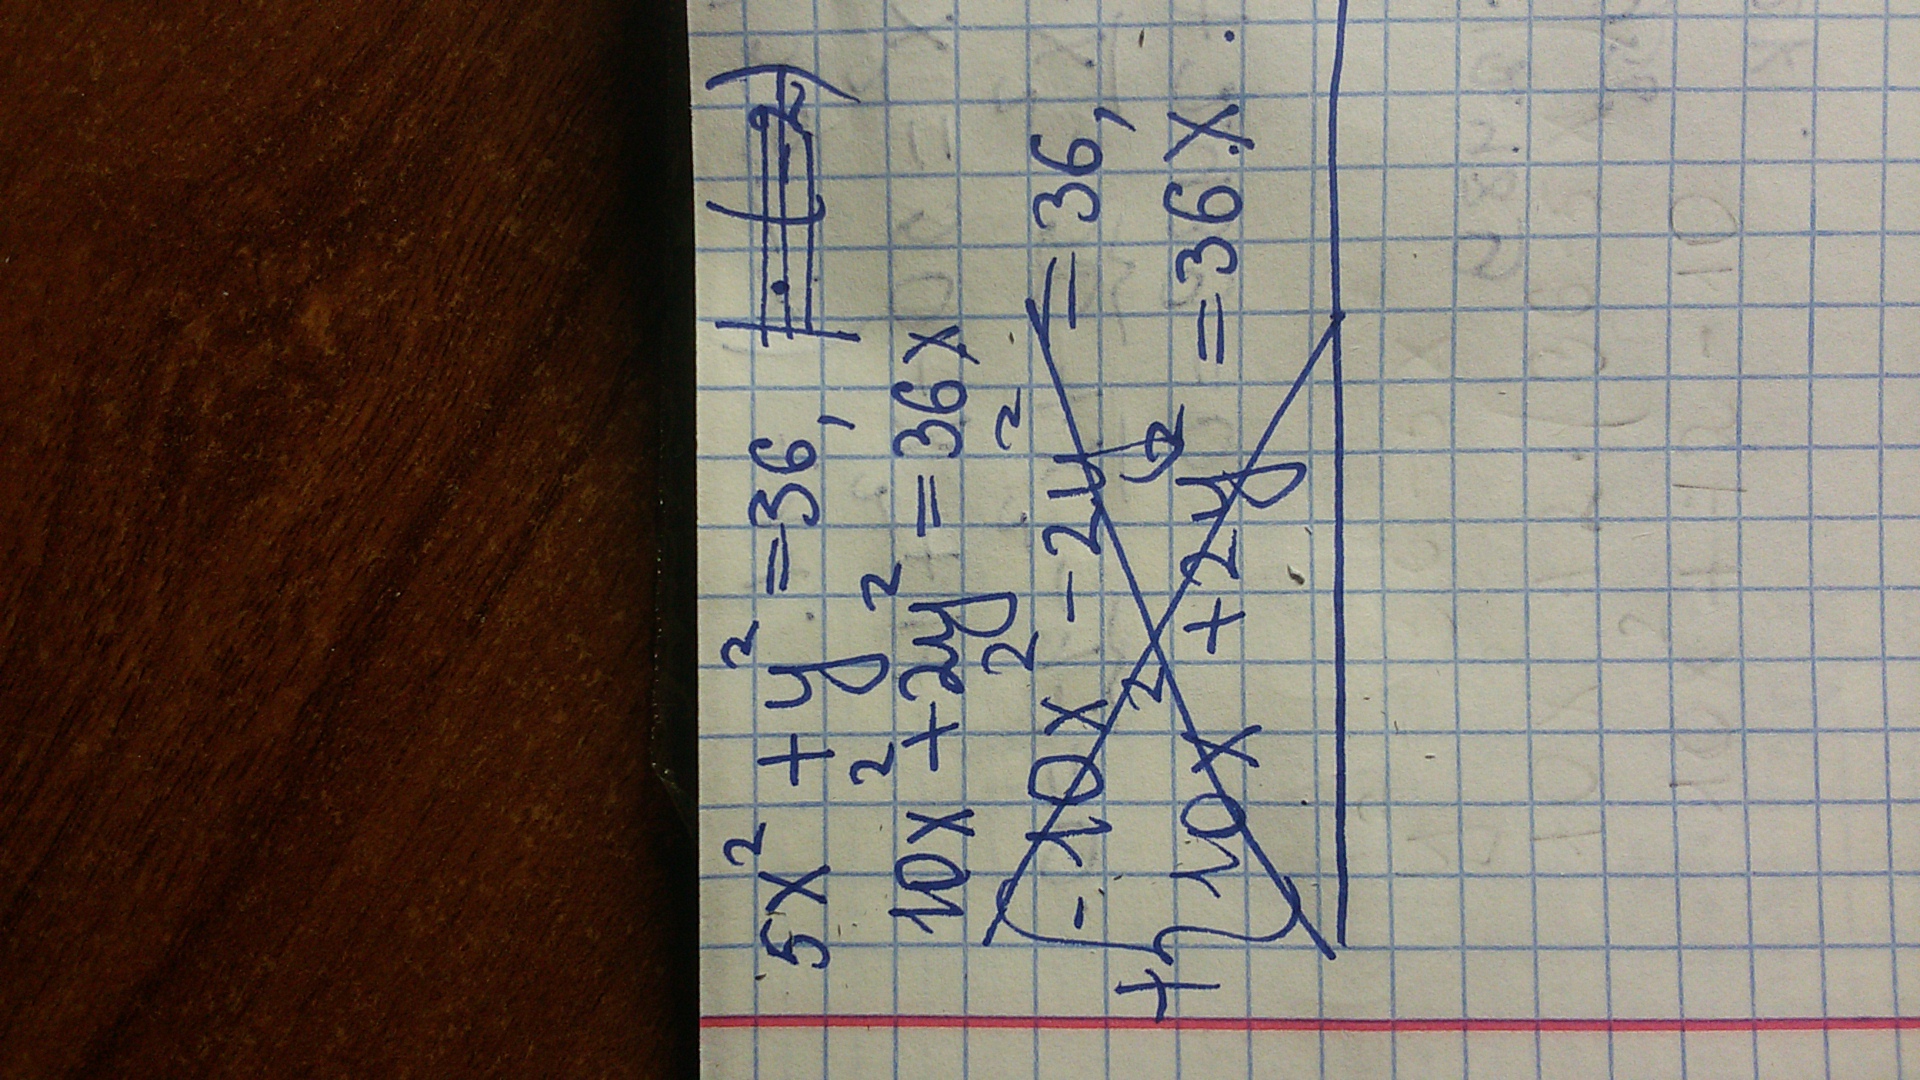 5x² + y² = 36, | · (-2)
10x² + 2y² = 36x
- 10x² - 2y² = 36,
+ { 10x² + 2y² = 36x.